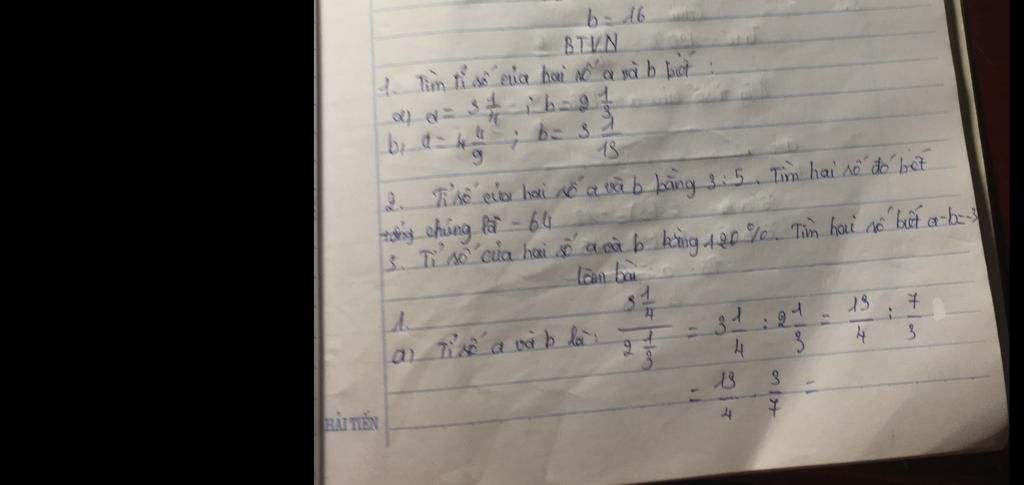 b = 16
BTVN
1. Tìm tỉ số của hai số a và b biết :
a) a = 3 1/4 ; b = 2 1/3
b, a = 4 4/9 ; b = 3 1/13
2. Tỉ số của hai số a và b bằng 3 : 5. Tìm hai số đó biết
tổng chúng là - 64
3. Tỉ số của hai số a và b bằng 120 %. Tìm hai số biết a-b=-3
Làm bài
1.
a) Tỉ số a và b là: (3 1/4)/(2 1/3) = 3 1/4 : 2 1/3 = 13/4 : 7/3
= 13/4 . 3/7 =
HẢI TIẾN